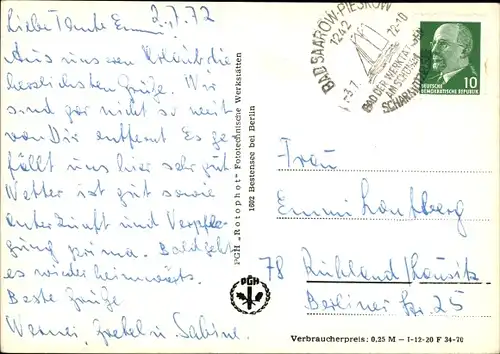 Liebe Tante Emmi! 2.7.72
Aus unserem Urlaub die
herzlichsten Grüße. Wir
sind gar nicht so weit
von Dir entfernt. Es ge-
fällt uns hier sehr gut.
Wetter ist gut sowie
Unterkunft und Verpfle-
gung prima. Bald geht
es wieder heimwärts.
Beste Grüße
Werner, u. Sabine.
PGH „Rotophot" Fototechnische Werkstätten
1602 Bestensee bei Berlin
PGH
BAD SAAROW-PIESKOW
1242
-3.7. 72-10
BAD DER WERKTÄTIGEN
AM SCHÖNEN
SCHARMÜTZELSEE
10
DEUTSCHE
DEMOKRATISCHE REPUBLIK
Frau
Emmi
78 Ruhland/Lausitz
Berliner Str. 25
Verbraucherpreis: 0,25 M – I-12-20 F 34-70